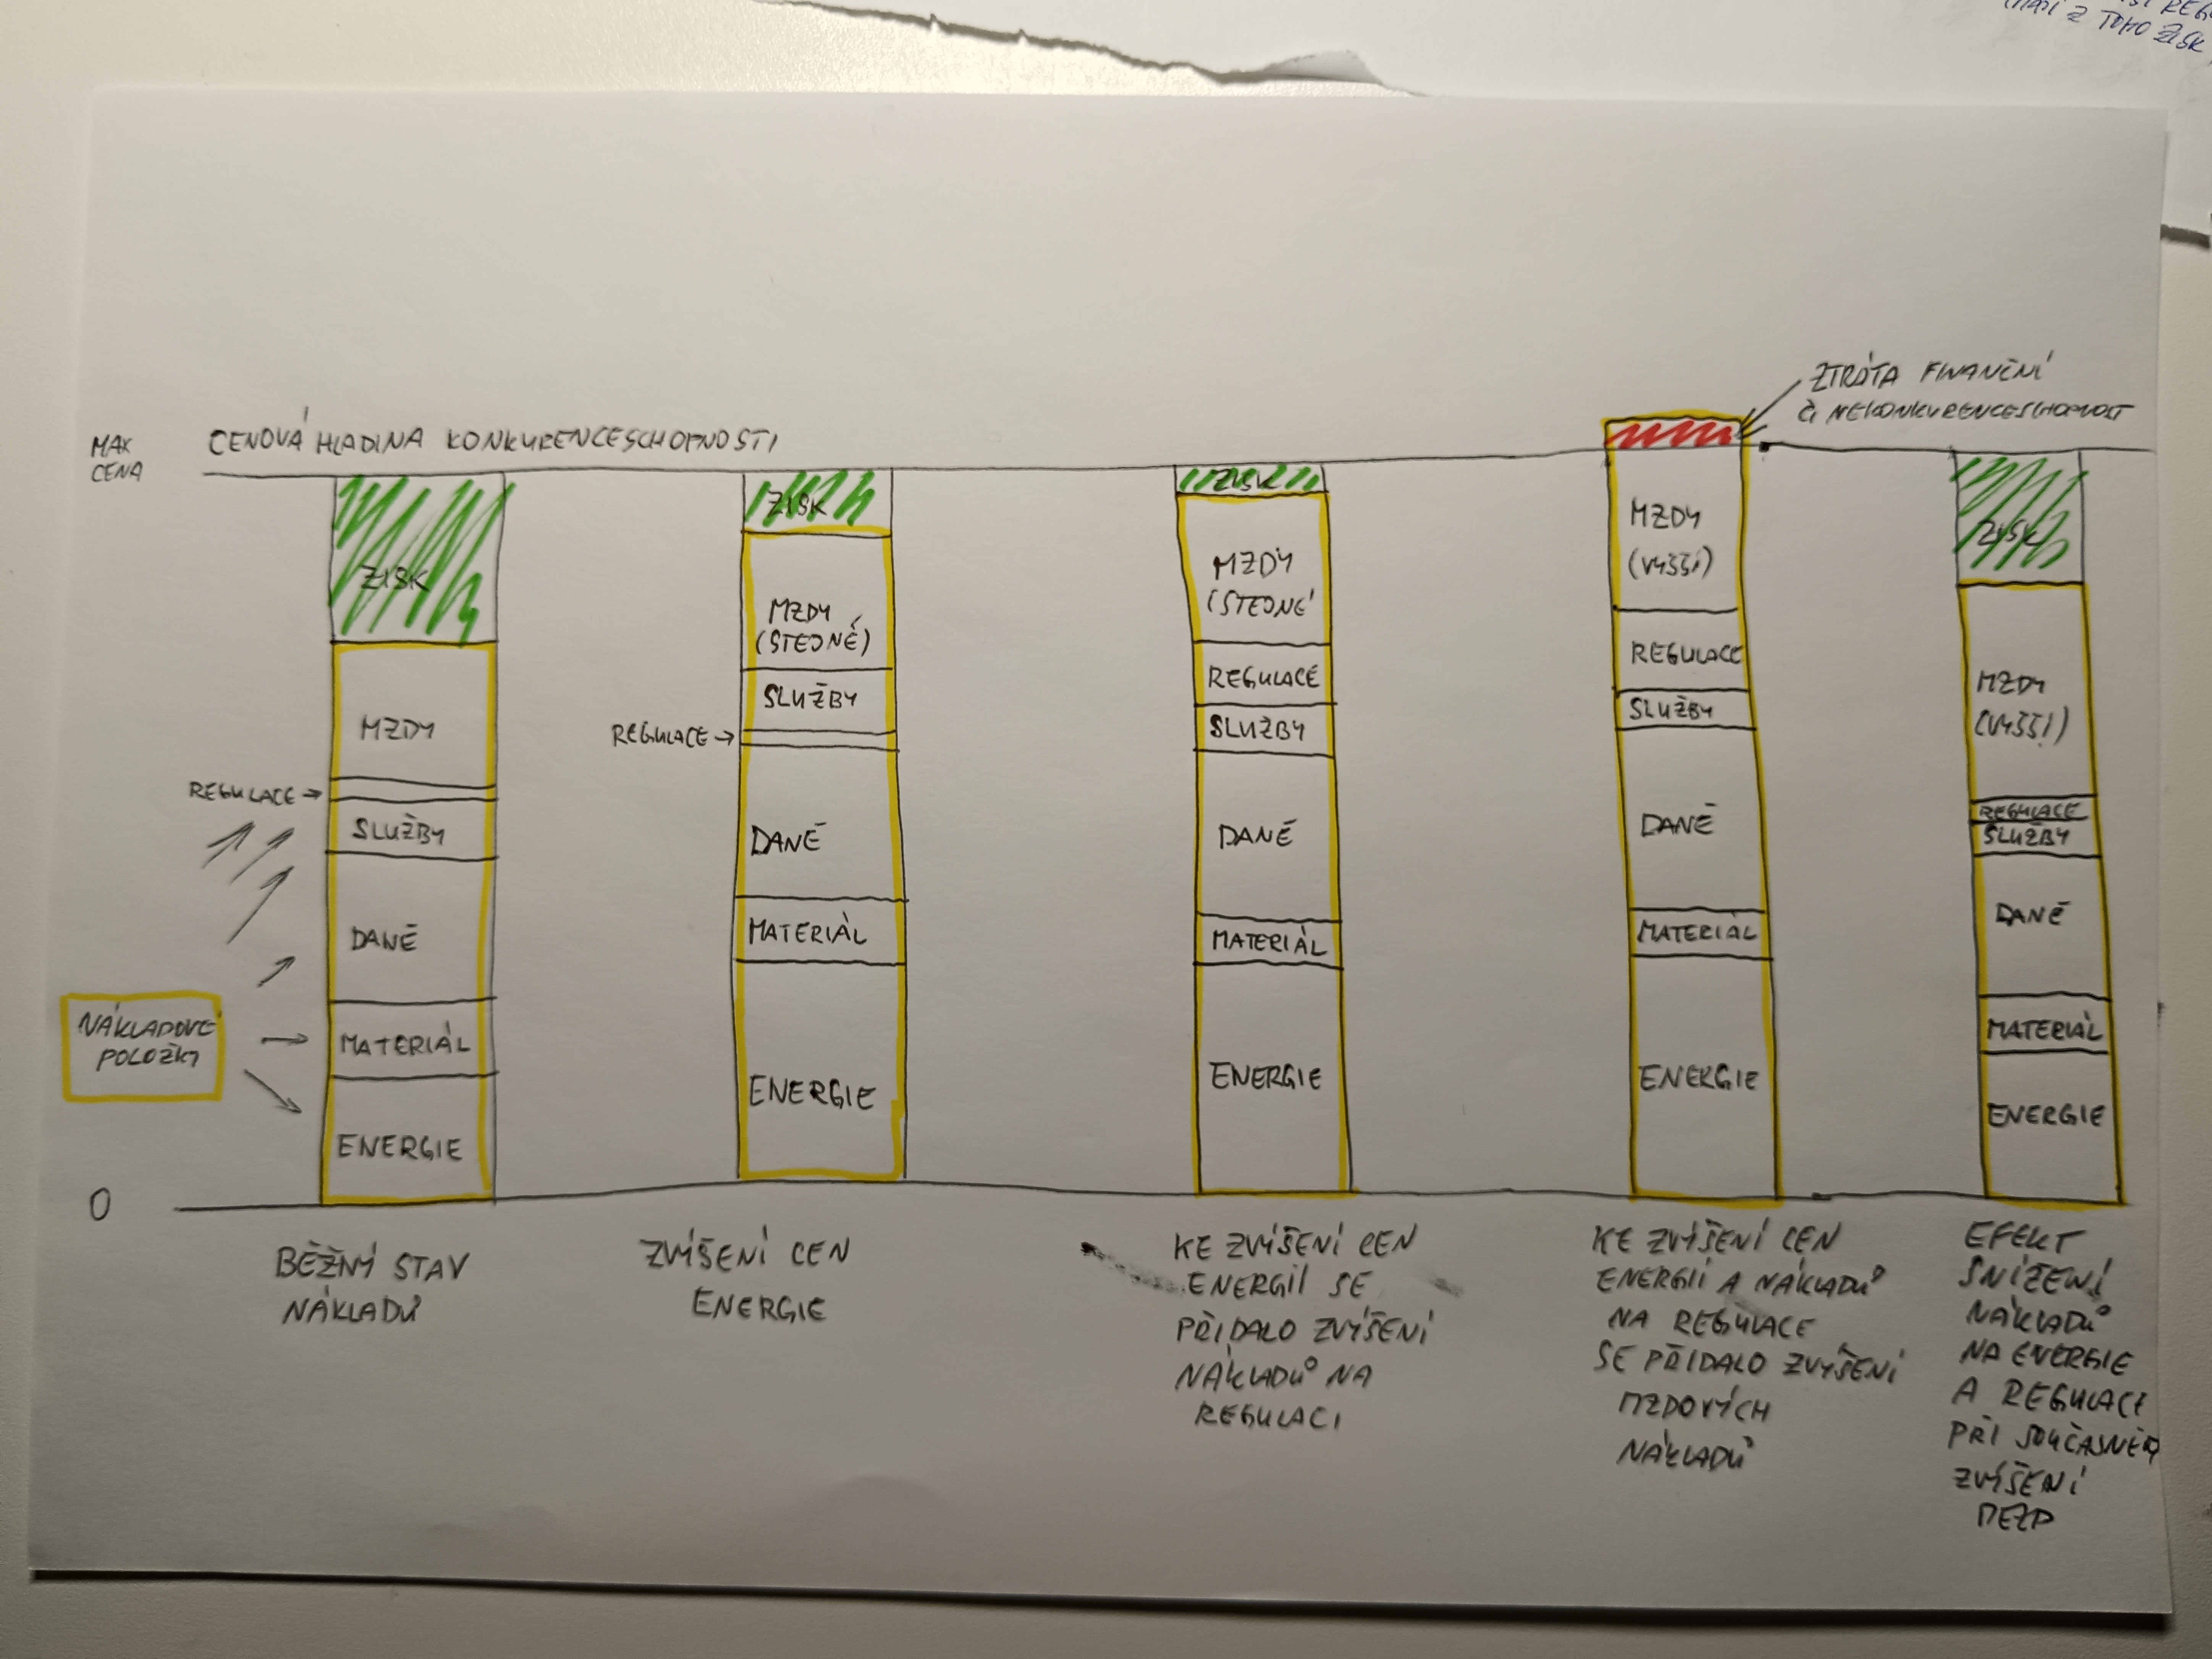 Z TOHO ZISK
ZTRÁTA FINANČNÍ
Či NEKONKURENCESCHOPNOST
MAX
CENA
CENOVÁ HLADINA KONKURENCESCHOPNOSTI
ZISK
MZDY
REGULACE →
SLUŽBY
DANĚ
MATERIÁL
ENERGIE
NÁKLADOVÉ
POLOŽKY
0
BĚŽNÝ STAV
NÁKLADŮ
ZISK
MZDY
(STEJNÉ)
SLUŽBY
REGULACE →
DANĚ
MATERIÁL
ENERGIE
ZVÝŠENÍ CEN
ENERGIE
ZISK
MZDY
(STEJNÉ
REGULACE
SLUŽBY
DANĚ
MATERIÁL
ENERGIE
KE ZVÝŠENÍ CEN
ENERGIÍ SE
PŘIDALO ZVÝŠENÍ
NÁKLADŮ NA
REGULACI
MZDY
(VYŠŠÍ)
REGULACE
SLUŽBY
DANĚ
MATERIÁL
ENERGIE
KE ZVÝŠENÍ CEN
ENERGIÍ A NÁKLADŮ
NA REGULACE
SE PŘIDALO ZVÝŠENÍ
MZDOVÝCH
NÁKLADŮ
ZISK
MZDY
(VYŠŠÍ)
REGULACE
SLUŽBY
DANĚ
MATERIÁL
ENERGIE
EFEKT
SNÍŽENÍ
NÁKLADŮ
NA ENERGIE
A REGULACI
PŘI SOUČASNÉM
ZVÝŠENÍ
MEZD